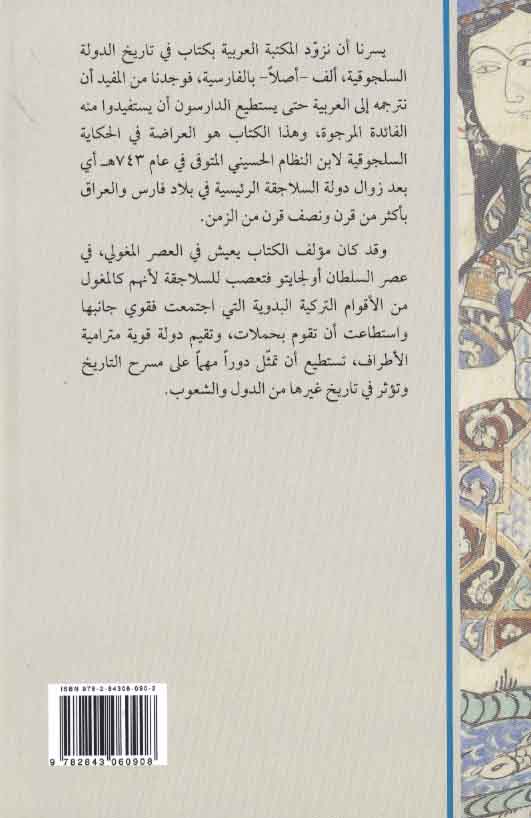 يسرنا أن نزوّد المكتبة العربية بكتاب في تاريخ الدولة
السلجوقية، ألف -أصلاً- بالفارسية، فوجدنا من المفيد أن
نترجمه إلى العربية حتى يستطيع الدارسون أن يستفيدوا منه
الفائدة المرجوة، وهذا الكتاب هو العراضة في الحكاية
السلجوقية لابن النظام الحسيني المتوفى في عام ٧٤٣هـ أي
بعد زوال دولة السلاجقة الرئيسية في بلاد فارس والعراق
بأكثر من قرن ونصف قرن من الزمن.
وقد كان مؤلف الكتاب يعيش في العصر المغولي، في
عصر السلطان أولجايتو فتعصب للسلاجقة لأنهم كالمغول
من الأقوام التركية البدوية التي اجتمعت فقوي جانبها
واستطاعت أن تقوم بحملات، وتقيم دولة قوية مترامية
الأطراف، تستطيع أن تمثّل دوراً مهماً على مسرح التاريخ
وتؤثر في تاريخ غيرها من الدول والشعوب.
ISBN 978-2-84306-090-8
9 782843 060908